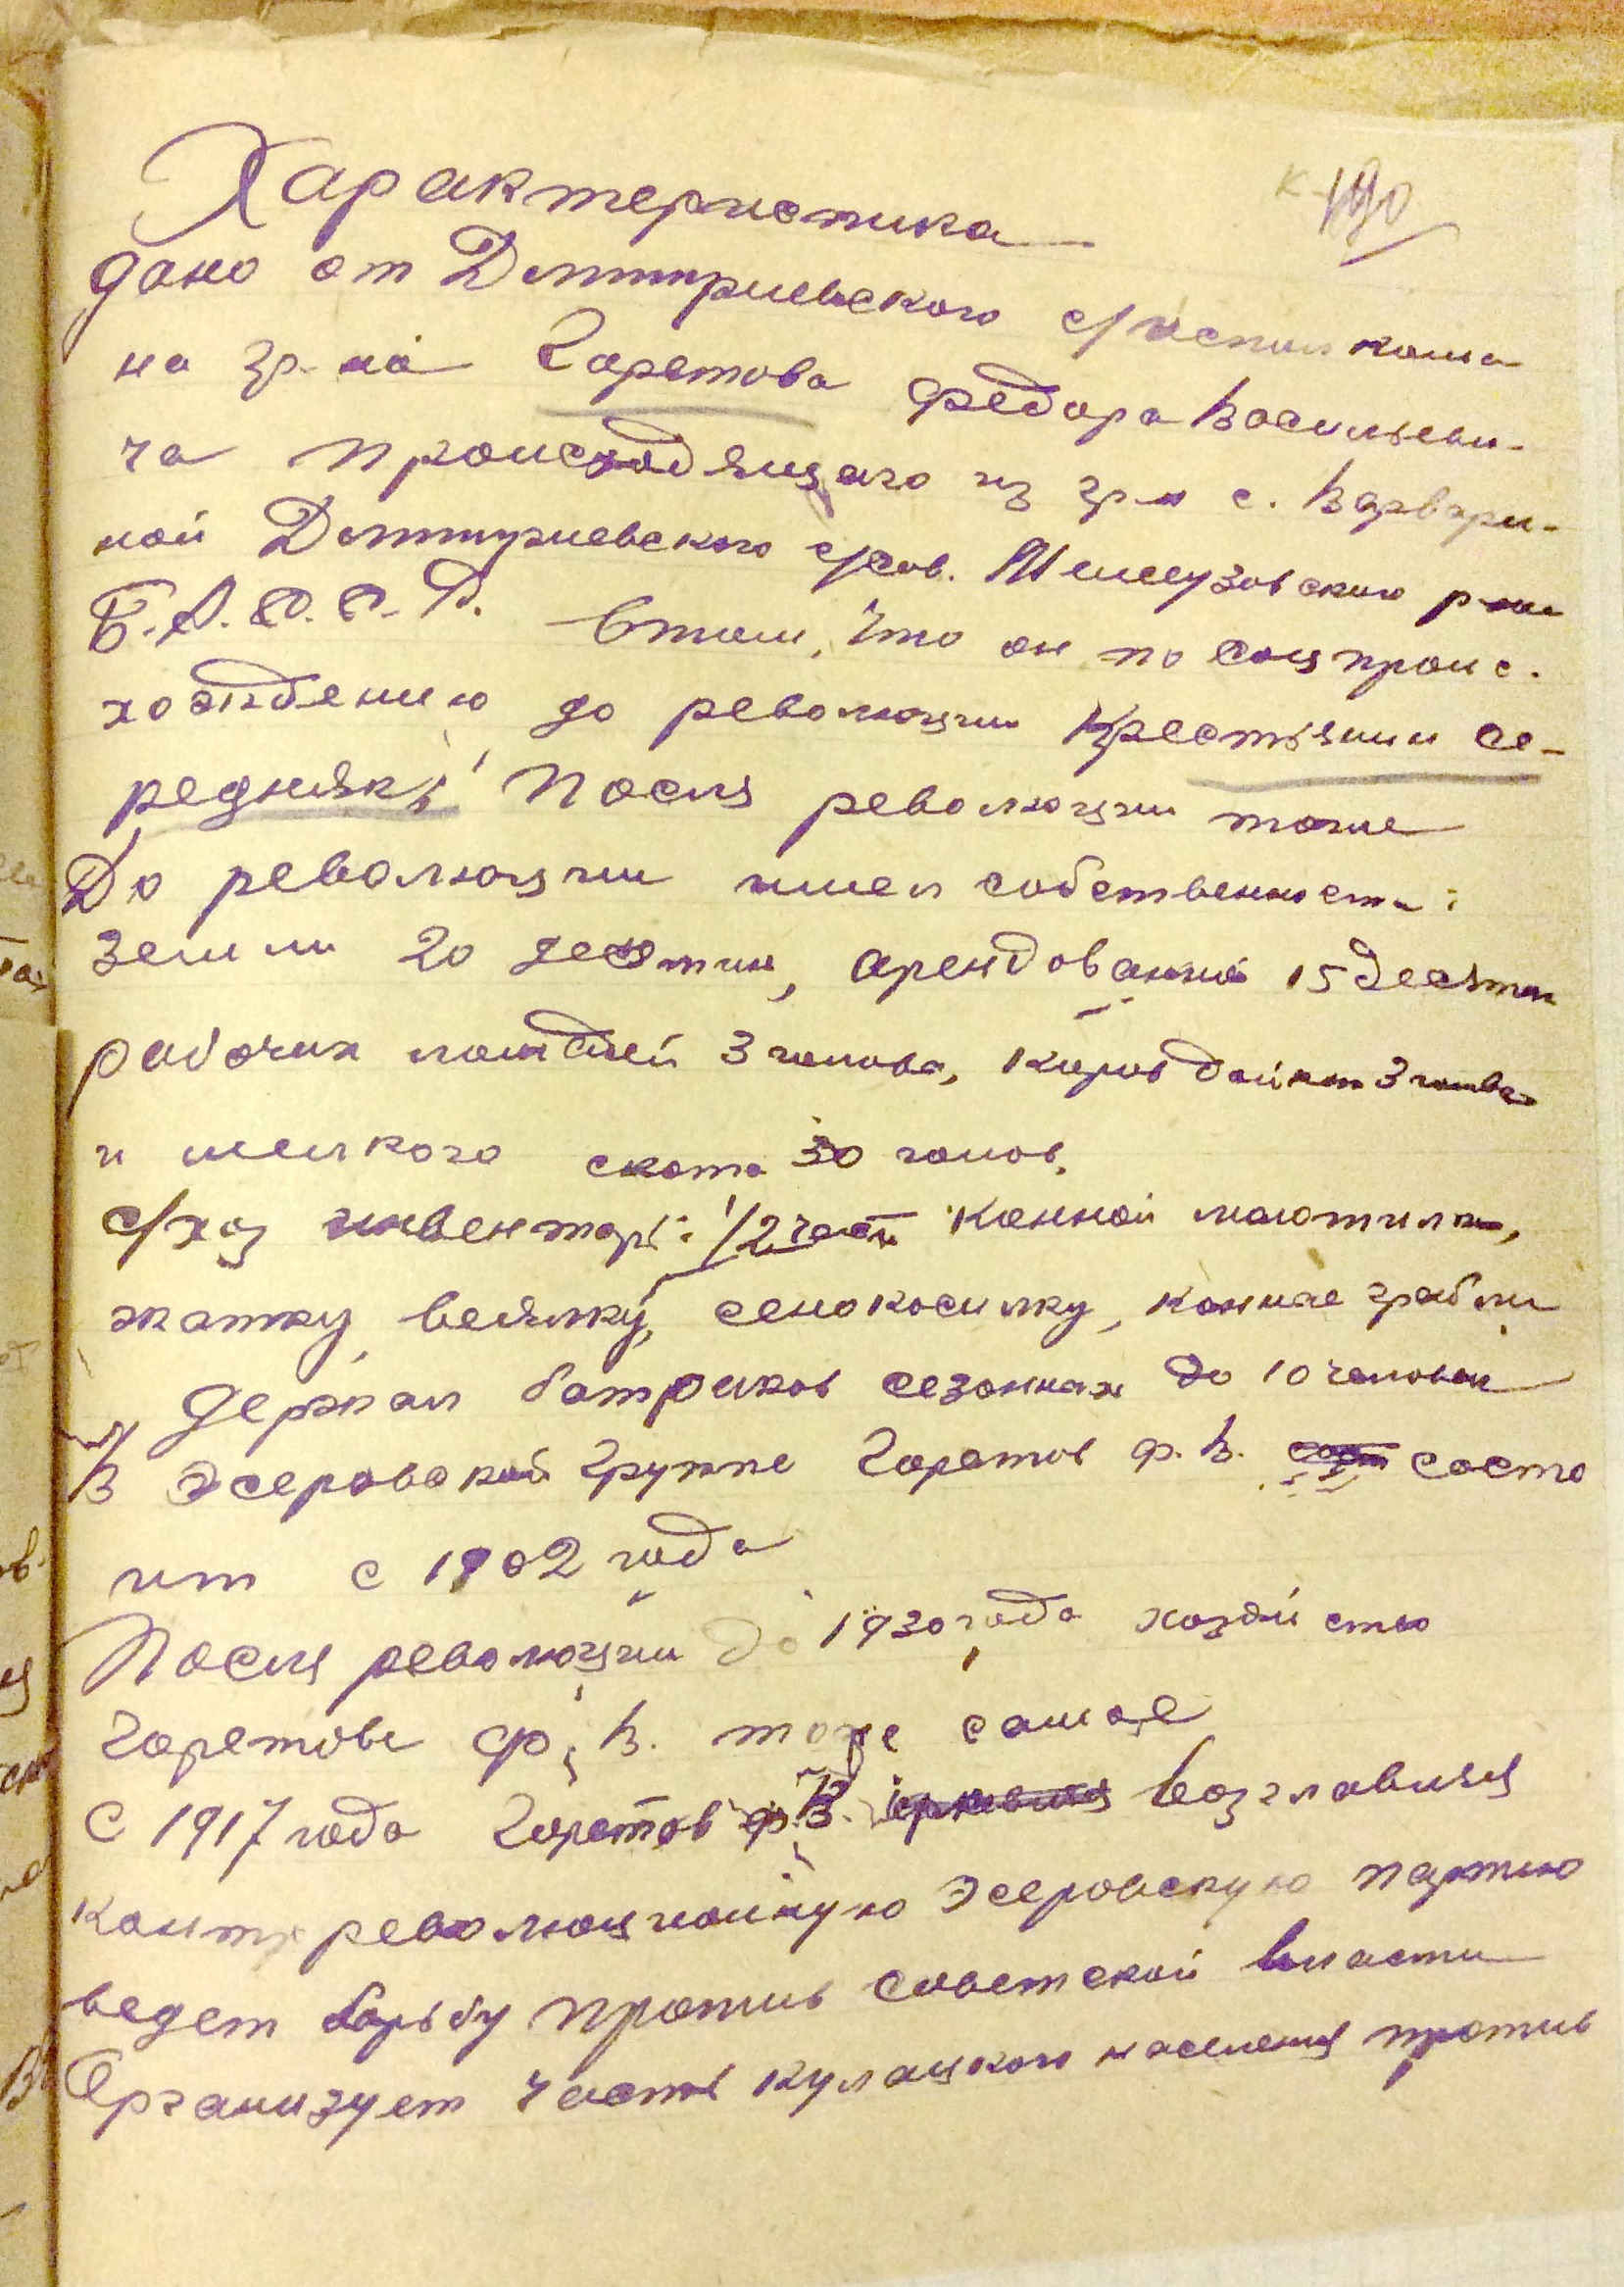 Характеристика
к-190
дано от Дмитриевского с/исполкома
на гр-на Горетова Федора Василиеви-
ча происходящаго из гр-н с. Варвари-
ной Дмитриевского с/сов. Мелеузовского р-на
Б.А.С.С.Р. Втом, что он по соцпроис-
хождению до революции Крестьянин се-
редняк, После революции тоже
До революции имел собственность:
Земли 20 десятин, арендованной 15 десятин
рабочих лошадей 3 голова, коров дойных 3 голова
и мелкого скота 30 голов.
с/хоз инвентарь: 1/2 часть конной молотилки,
жатку, веялку, сенокосилку, конные грабли
держал батраков сезонных до 10 человек
В Эсеровской группе Горетов Ф.В. состо
ит с 1902 года
После революции до 1930 года хозяйство
Горетова Ф.В. тоже самое
С 1917 года Горетов Ф.В. возглавляя
контрреволюционную Эсеровскую партию
ведет борьбу против советской власти
Организует часть кулацкого населения против